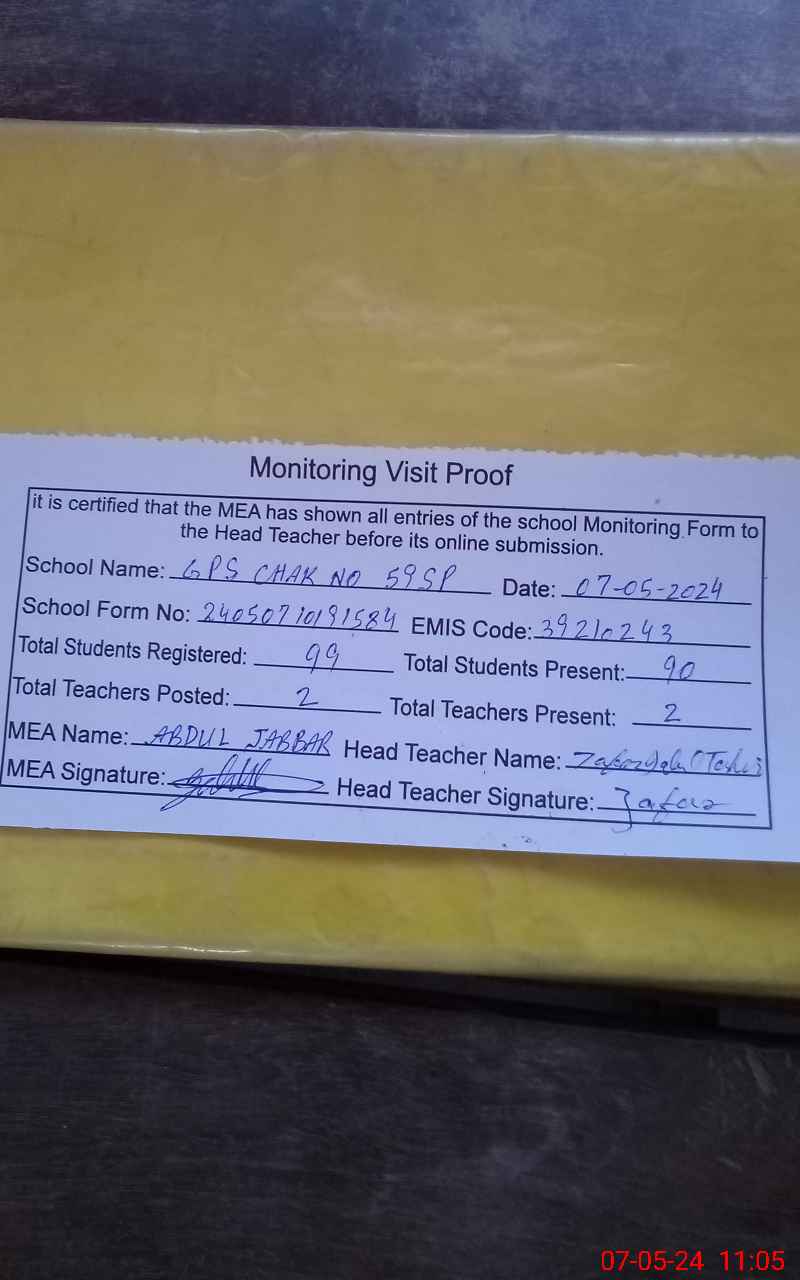 Monitoring Visit Proof
it is certified that the MEA has shown all entries of the school Monitoring Form to
the Head Teacher before its online submission.
School Name: GPS CHAK NO 59SP Date: 07-05-2024
School Form No: 24050710191584 EMIS Code: 39210243
Total Students Registered: 99 Total Students Present: 90
Total Teachers Posted: 2 Total Teachers Present: 2
MEA Name: ABDUL JABBAR Head Teacher Name:
MEA Signature: Head Teacher Signature: Zafar
07-05-24 11:05